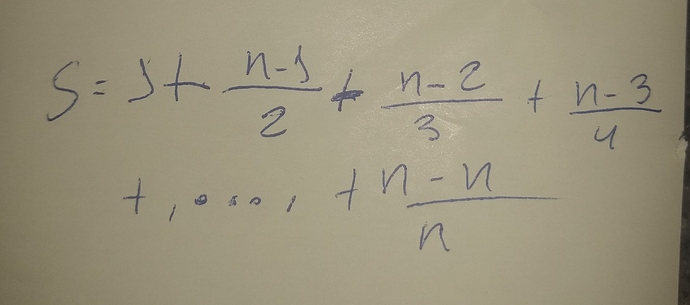 S = 1 + \frac{n-1}{2} + \frac{n-2}{3} + \frac{n-3}{4}
+, ...., + \frac{n-n}{n}